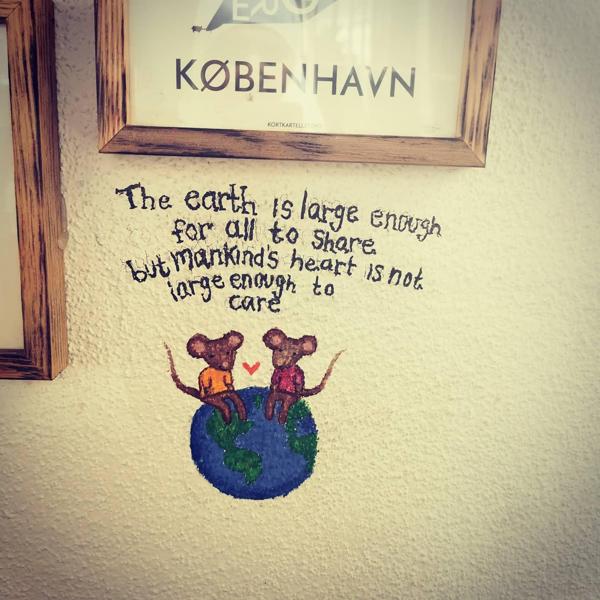 KØBENHAVN
The earth is large enough
for all to share
but mankind's heart is not
large enough to
care